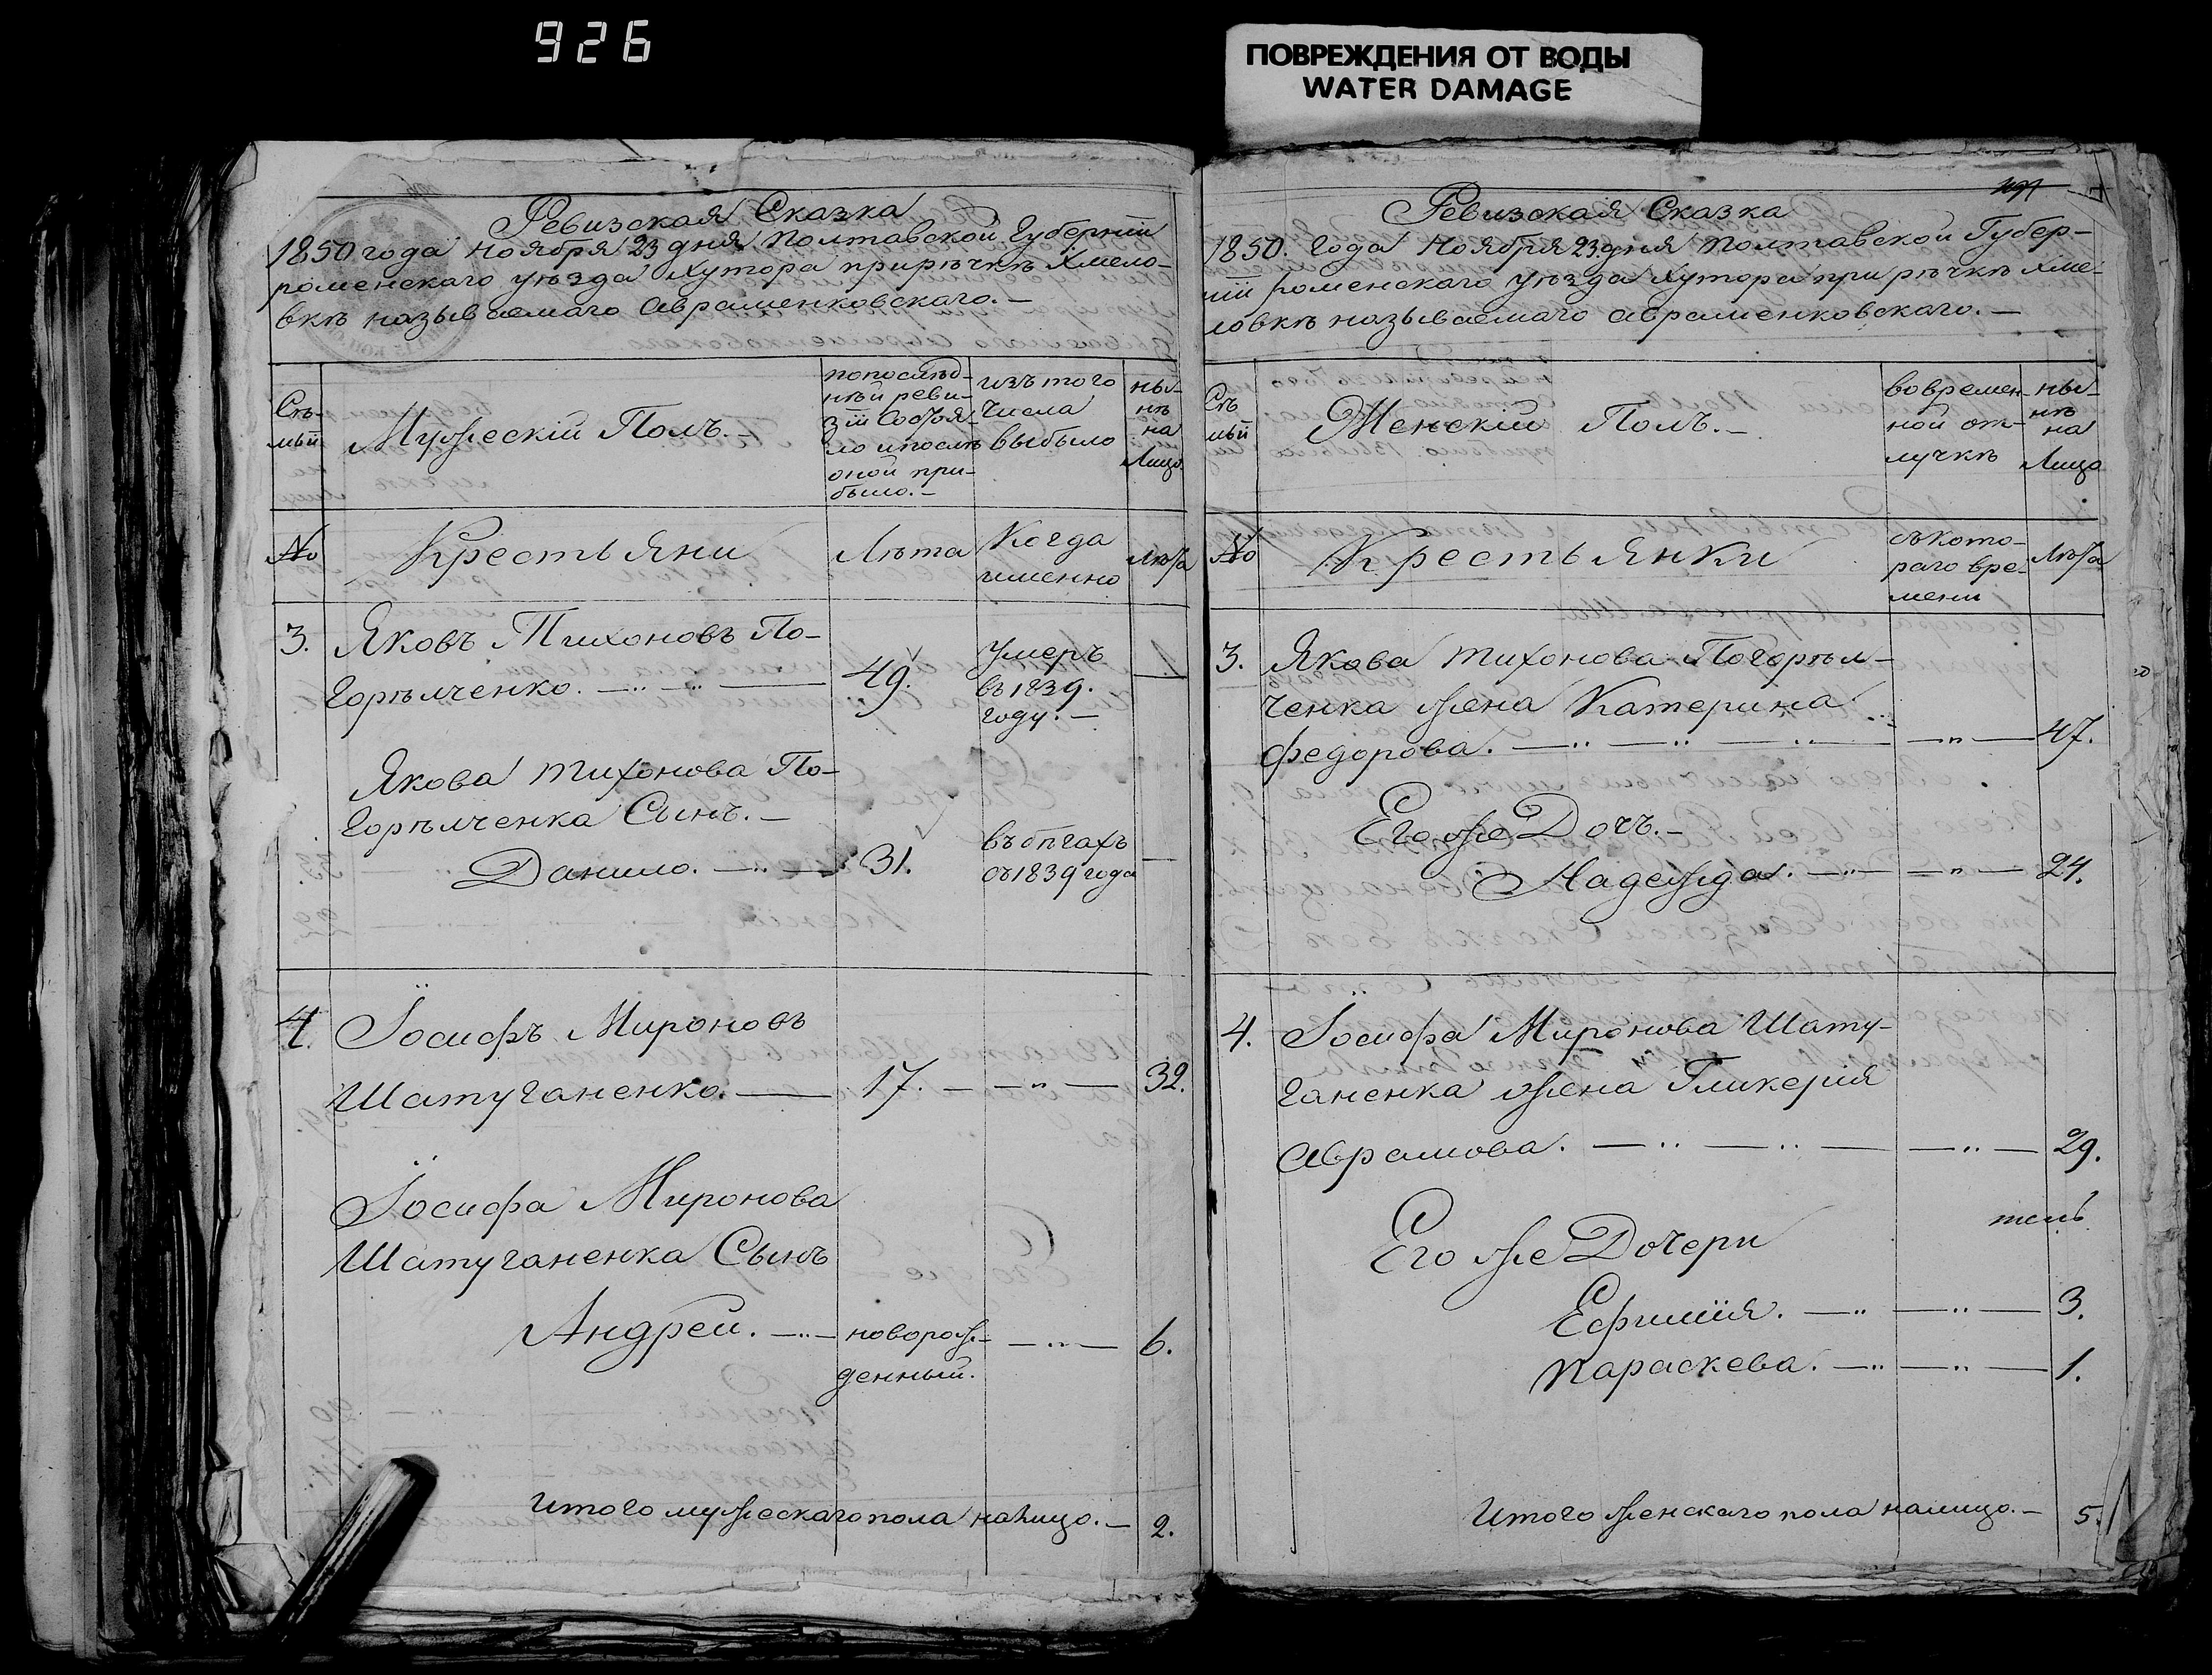 926
ПОВРЕЖДЕНИЯ ОТ ВОДЫ
WATER DAMAGE
Ревизская Сказка
1850 года Ноября 23 дня Полтавской Губерніи
роменскаго уѣзда Хутора при рѣчкѣ Хмело-
вкѣ называемаго Авраменковскаго.—
Семьи
Мужескій Полъ.—
по послѣд-
нѣй реви-
зіи Состоя-
ло и послѣ
оной при-
было.—
изъ того
числа
выбыло
ны-
нѣ
на
Лицо
№
Крестьяни
Лѣта
Когда
именно
Лѣта
3.
Яковъ Тихоновъ По-
горѣлченко. — „ — „ —
49.
умеръ
въ 1839.
году.—
Якова Тихонова По-
горѣлченка Сынъ.—
Данило. — „ —
31.
въ бѣгахъ
съ 1839 года
—
4.
Іосифъ Мироновъ
Шатуганенко. —
17. — — „ —
32.
Іосифа Миронова
Шатуганенка Сынъ
Андреи. — „ —
новорож-
денный.
— „ —
6.
Итого мужескаго пола налицо.—
2.
Ревизская Сказка
1850. года Ноября 23 дня Полтавской Губер-
ніи роменскаго уѣзда Хутора при рѣчкѣ Хме-
ловкѣ называемаго Авраменковскаго.—
Семьи
Женскій Полъ.—
во времен-
ной от-
лучкѣ
ны-
нѣ
на
Лицо
№
Крестьянки
съ кото-
раго вре-
мени
Лѣта
3.
Якова Тихонова Погорѣл-
ченка жена Катерина
Федорова. — „ — „ — „ — — „ — 47.
Его же Дочъ.—
Надежда. — „ — — „ — 24.
4.
Іосифа Миронова Шату-
ганенка жена Гликерія
Аврамова. — „ — „ — — „ — 29.
Его же Дочери
Ефимія. — „ — „ — 3.
Параскева. — „ — „ — 1.
Итого женскаго пола налицо.—
5.